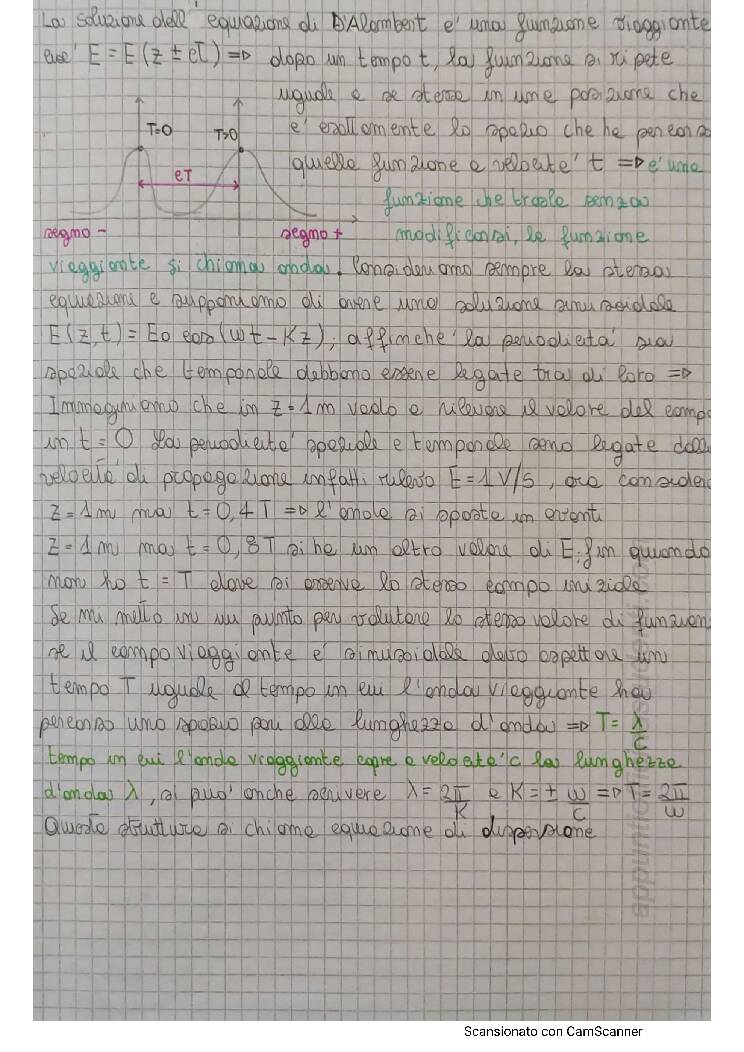 La soluzione dell'equazione di D'Alambert e' una funzione viaggiante
cise' E = E(z ± cT) => dopo un tempo t, la funzione si ripete
uguale a se stessa in una posizione che
T=0 T>0 e' esattamente lo spazio che ha percorso
quella funzione a velocita' t => e' una
cT
funzione che trasla senza
segno - segno + modificarsi, la funzione
viaggiante si chiama onda. Consideriamo sempre la stessa
equazioni e supponiamo di avere una soluzione sinusoidale
E(z,t) = E0 cos(wt-Kz), affinche' la periodicita' sia
spaziale che temporale debbono essere legate tra di loro =>
Immaginiamo che in z=1m vado a rilevare il valore del campo
in t=0 La periodicita' spaziale e temporale sono legate dalla
velocita' di propagazione infatti rilevo E=1V/s, ora considero
z=1m ma t=0,4T => l'onda si sposta in avanti
z=1m ma t=0,8T si ha un altro valore di E; fin quando
non ho t=T dove si osserva lo stesso campo iniziale
Se mi metto in un punto per valutare lo stesso valore di funzion
se il campo viaggiante e' sinusoidale devo aspettare un
tempo T uguale al tempo in cui l'onda viaggiante ha
percorso uno spazio pari alla lunghezza d'onda => T = λ/c
tempo in cui l'onda viaggiante copre a velocita' c la lunghezza
d'onda λ, si puo' anche scrivere λ = 2π/K e K = ± w/c => T = 2π/w
Questa struttura si chiama equazione di dispersione
Scansionato con CamScanner